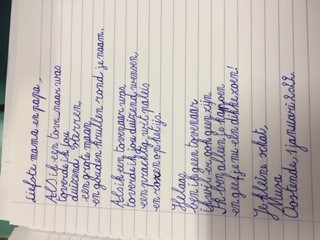 Liefste mama en papa,
Als ik een tovenaar was
toverde ik jou
duizend sterren
een grote maan
en gouden krullen rond je naam.
Als ik een tovenaar was,
toverde ik jou duizend wensen
een prachtig wit paleis
en op het ijs!
Helaas
ben ik geen tovenaar
ik wil er ook geen zijn
Ik ben alleen je kapoen
en geef je nu een dikke zoen!
Je kleine schat,
Oostende, januari